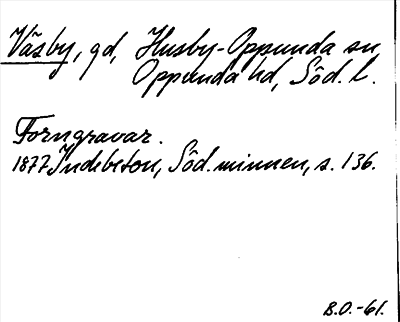 Väsby, gd, Husby-Oppunda sn,
Oppunda hd, Söd. l.
Forngravar.
1877 Indebetou, Söd. minnen, s. 136.
B.O.-61.